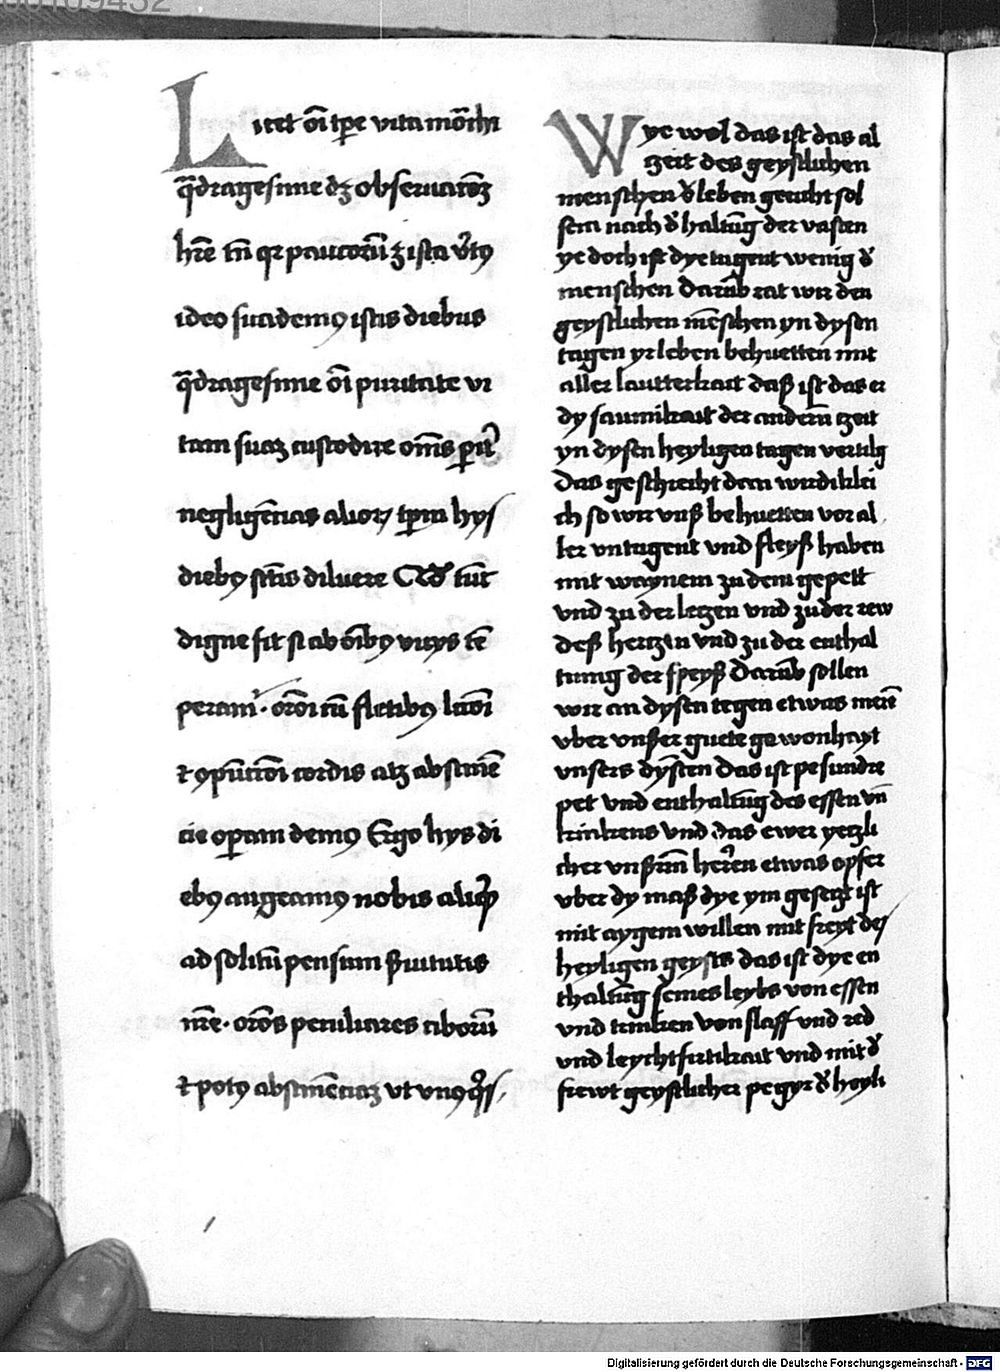 00109432
Licet oi̅ tp̅e vita mo̅chi
q̅dragesime dꝫ obseruac̅oꝫ
hr̅e tn̅ qꝛ paucorū ꝫ ista v̓tꝰ
ideo suademꝰ istis diebus
q̅dragesime oi̅ puritate vi
tam suaꝫ custodire om̅s pit̓
negligēcias alioꝝ tp̅m hys
diebꝰ sc̅tis diluere Qd̓ tūc
digne fit si ab oi̅bꝰ vicys te̅
peram̓ · or̅oi cū fletibꝰ lc̅oi
⁊ ꝯpūcc̅oi cordis atꝫ abstinē
cie oꝑam demꝰ Ergo hys di
ebꝰ augeamꝰ nobis aliqͥd
ad solitū pensum ẜuitutis
nr̅e · or̅os peculiares ciborū
⁊ potꝰ abstinēciaꝫ vt vnꝰqͥsꝫ
Wye wol das ist das al
zeit des geystlichen
menschen d̓ leben gericht sol
sein nach d̓ haltūg der vasten
ye doch ist dye tugent wenig d̓
menschen Darūb rat wir den
geystlichen mēschen yn dysen
tagen yr leben behuetten mit
aller lautterkait daß ist das er
dy saumikait der andern̅ czeit
yn dysen heyligen tagen vertilg
das geschiecht dem wirdiklei
ch so wir vnß behuetten vor al
ler vntugent vnd fleyß haben
mit waynem zu dem gepett
vnd zu der leczen vnd zu der rew
deß herczn vnd zu der enthal
tung der speyß Darūb sollen
wir an dysen tegen etwas merē
vber vnßer guete gewonhayt
vnsers dynsten das ist pesundre
pet vnd enthaltūg des essen vn̅
trinkens vnd das ewer yeczli
cher vnßerm her̅en etwas opfer
vber dy maß dye ym geseczt ist
mit aygem willen mit freyt des
heyligen geysts das ist dye en
thaltūg seines leybs von essen
vnd trinken von slaff vnd red
vnd leychtfertikait vnd mit d̓
frewt geystlicher pegyr d̓ heyli
Digitalisierung gefördert durch die Deutsche Forschungsgemeinschaft - DFG